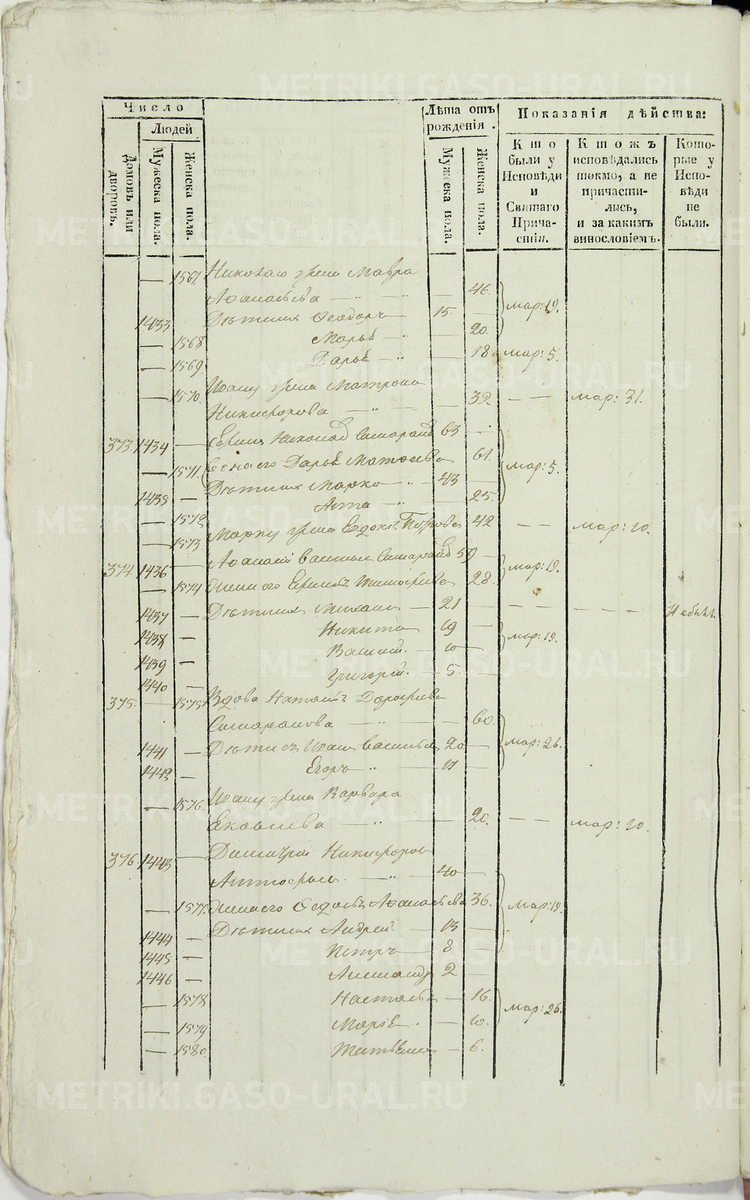 Число
Людей
Домовъ или дворовъ.
Мужеска пола.
Женска пола.
Лѣта отъ рожденія.
Мужеска пола.
Женска пола.
Показанія дѣйства:
Кто были у Исповѣди и Святаго Причастія.
Ктожъ исповѣдались токмо, а не причастились, и за какимъ винословіемъ.
Которые у Исповѣди не были.
— 1567 Николаю жена Мавра
Аѳанасьева — 46.
1433 Дѣти ихъ Ѳеодоръ — 15. мар: 19.
— 1568 Марья — 20.
— 1569 Дарья — 18. мар: 5.
— 1570 Ивану жена Матрона
Никифорова — 32 — — мар: 31.
373. 1434 — Николай 63 —
— 1571. Жена его Дарья Матвеева 61. мар: 5.
1435 — Дѣти ихъ Марко — 43
— 1572 Анна — 25.
— 1573 Марку жена Евдок: Петрова 42 — — мар: 20.
374. 1436 — Аѳанасій Васильев 59 —
— 1574 Жена его Тимоѳеева 28. мар: 19.
1437 — Дѣти ихъ Михаил — 21 — — — — Не был.
1438 — Никита — 19 мар: 19.
1439 — Василій — 10
1440 — Григорій — 5.
375. — 1575 Вдова Наталья Дороѳеева
— 60.
1441 — Дѣти ея Иван Васильев 20 — мар: 26.
1442 — Егоръ — 11
— 1576. Ивану жена Варвара
Яковлева — 20. — — мар: 20.
376. 1443 — Димитрій Никифоров
— 40 —
— 1577. Жена его Ѳедосья Аѳанасьева 36. мар: 19.
1444 — Дѣти ихъ Андрей — 13 —
1445 — Петръ — 8 —
1446 — Александр 2 —
— 1578 Настасья — 16. мар: 26.
— 1579 Марія — 10.
— 1580 Татьяна — 6.
METRIKI.GASO-URAL.RU
METRIKI.GASO-URAL.RU
METRIKI.GASO-URAL.RU
METRIKI.GASO-URAL.RU